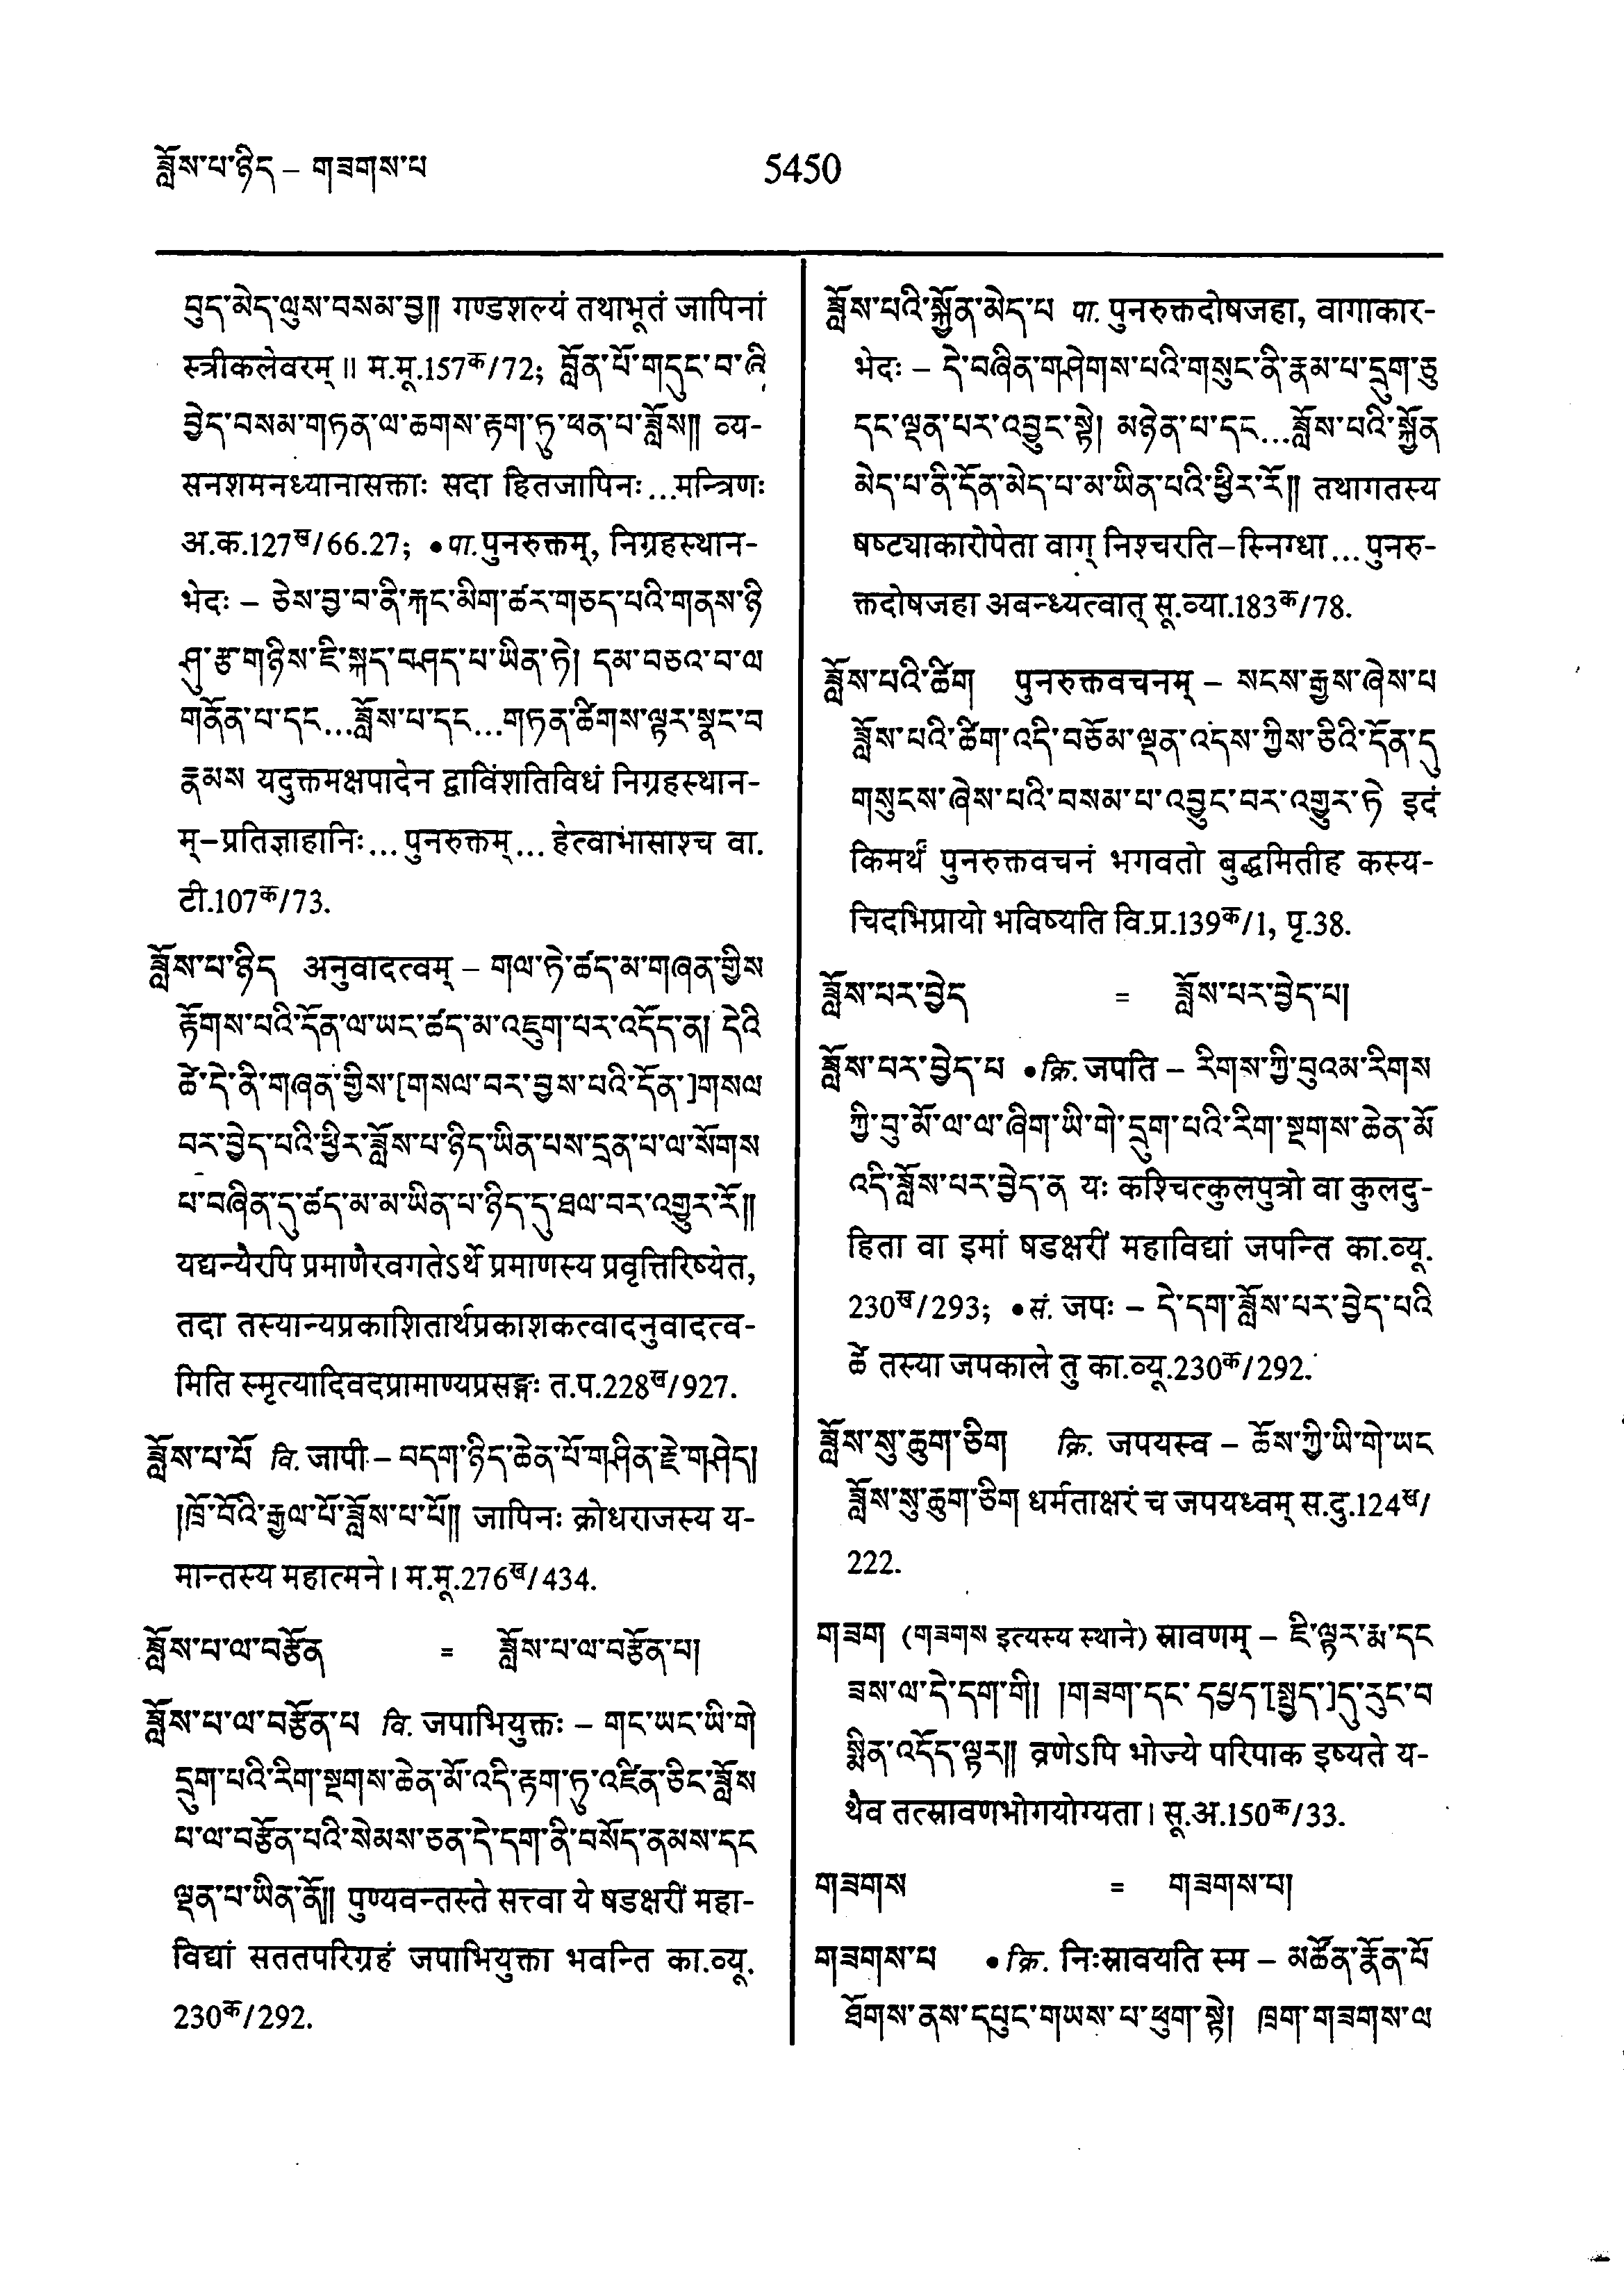 ཟློས་པ་ཉིད – གཟགས་པ
5450
བུད་མེད་ལུས་བསམ་བྱ༎ गण्डशल्यं तथाभूतं जापिनां
स्त्रीकलेवरम् ॥ म.मू.157क/72; བློན་པོ་གདུང་བ་ཞི
བྱེད་བསམ་གཏན་ལ་ཆགས་རྟག་ཏུ་ཕན་པ་ཟློས༎ व्य-
सनशमनध्यानासक्ताः सदा हितजापिनः...मन्त्रिणः
अ.क.127ख/66.27; •पा.पुनरुक्तम्, निग्रहस्थान-
भेदः – ཅེས་བྱ་བ་ནི་རྐང་མིག་ཚར་གཅད་པའི་གནས་ཉི
ཤུ་རྩ་གཉིས་ཇི་སྐད་བཤད་པ་ཡིན་ཏེ། དམ་བཅའ་བ་ལ
གནོན་པ་དང...ཟློས་པ་དང...གཏན་ཚིགས་ལྟར་སྣང་བ
རྣམས यदुक्तमक्षपादेन द्वाविंशतिविधं निग्रहस्थान-
म्–प्रतिज्ञाहानिः...पुनरुक्तम्...हेत्वाभासाश्च वा.
टी.107क/73.
ཟློས་པ་ཉིད अनुवादत्वम् – གལ་ཏེ་ཚད་མ་གཞན་གྱིས
རྟོགས་པའི་དོན་ལ་ཡང་ཚད་མ་འཇུག་པར་འདོད་ན། དེའི
ཚེ་དེ་ནི་གཞན་གྱིས་[གསལ་བར་བྱས་པའི་དོན་]གསལ
བར་བྱེད་པའི་ཕྱིར་ཟློས་པ་ཉིད་ཡིན་པས་དྲན་པ་ལ་སོགས
པ་བཞིན་དུ་ཚད་མ་མ་ཡིན་པ་ཉིད་དུ་ཐལ་བར་འགྱུར་རོ༎
यद्यन्यैरपि प्रमाणैरवगतेऽर्थे प्रमाणस्य प्रवृत्तिरिष्येत,
तदा तस्यान्यप्रकाशितार्थप्रकाशकत्वादनुवादत्व-
मिति स्मृत्यादिवदप्रामाण्यप्रसङ्गः त.प.228ख/927.
ཟློས་པ་པོ वि. जापी – བདག་ཉིད་ཆེན་པོ་གཤིན་རྗེ་གཤེད།
།ཁྲོ་བོའི་རྒྱལ་པོ་ཟློས་པ་པོ༎ जापिनः क्रोधराजस्य य-
मान्तस्य महात्मने । म.मू.276ख/434.
ཟློས་པ་ལ་བརྩོན = ཟློས་པ་ལ་བརྩོན་པ།
ཟློས་པ་ལ་བརྩོན་པ वि. जपाभियुक्तः – གང་ཡང་ཡི་གེ
དྲུག་པའི་རིག་སྔགས་ཆེན་མོ་འདི་རྟག་ཏུ་འཛིན་ཅིང་ཟློས
པ་ལ་བརྩོན་པའི་སེམས་ཅན་དེ་དག་ནི་བསོད་ནམས་དང
ལྡན་པ་ཡིན་ནོ༎ पुण्यवन्तस्ते सत्त्वा ये षडक्षरीं महा-
विद्यां सततपरिग्रहं जपाभियुक्ता भवन्ति का.व्यू.
230क/292.
ཟློས་པའི་སྐྱོན་མེད་པ पा. पुनरुक्तदोषजहा, वागाकार-
भेदः – དེ་བཞིན་གཤེགས་པའི་གསུང་ནི་རྣམ་པ་དྲུག་ཅུ
དང་ལྡན་པར་འབྱུང་སྟེ། མཉེན་པ་དང...ཟློས་པའི་སྐྱོན
མེད་པ་ནི་དོན་མེད་པ་མ་ཡིན་པའི་ཕྱིར་རོ༎ तथागतस्य
षष्ट्याकारोपेता वाग् निश्चरति–स्निग्धा...पुनरु-
क्तदोषजहा अबन्ध्यत्वात् सू.व्या.183क/78.
ཟློས་པའི་ཚིག पुनरुक्तवचनम् – སངས་རྒྱས་ཞེས་པ
ཟློས་པའི་ཚིག་འདི་བཅོམ་ལྡན་འདས་ཀྱིས་ཅིའི་དོན་དུ
གསུངས་ཞེས་པའི་བསམ་པ་འབྱུང་བར་འགྱུར་ཏེ इदं
किमर्थं पुनरुक्तवचनं भगवतो बुद्धमितीह कस्य-
चिदभिप्रायो भविष्यति वि.प्र.139क/1, पृ.38.
ཟློས་པར་བྱེད = ཟློས་པར་བྱེད་པ།
ཟློས་པར་བྱེད་པ •क्रि. जपति – རིགས་ཀྱི་བུའམ་རིགས
ཀྱི་བུ་མོ་ལ་ལ་ཞིག་ཡི་གེ་དྲུག་པའི་རིག་སྔགས་ཆེན་མོ
འདི་ཟློས་པར་བྱེད་ན यः कश्चित्कुलपुत्रो वा कुलदु-
हिता वा इमां षडक्षरीं महाविद्यां जपन्ति का.व्यू.
230ख/293; •सं. जपः – དེ་དག་ཟློས་པར་བྱེད་པའི
ཚེ तस्या जपकाले तु का.व्यू.230क/292.
ཟློས་སུ་ཆུག་ཅིག क्रि. जपयस्व – ཆོས་ཀྱི་ཡི་གེ་ཡང
ཟློས་སུ་ཆུག་ཅིག धर्मताक्षरं च जपयध्वम् स.दु.124ख/
222.
གཟག (གཟགས इत्यस्य स्थाने) स्रावणम् – ཇི་ལྟར་རྨ་དང
ཟས་ལ་དེ་དག་གི། །གཟག་དང་དཔྱད་[སྤྱད་]དུ་རུང་བ
སྨིན་འདོད་ལྟར༎ व्रणेऽपि भोज्ये परिपाक इष्यते य-
थैव तत्स्रावणभोगयोग्यता । सू.अ.150क/33.
གཟགས = གཟགས་པ།
གཟགས་པ •क्रि. निःस्रावयति स्म – མཚོན་རྣོན་པོ
ཐོགས་ནས་དཔུང་གཡས་པ་ཕུག་སྟེ། ཁྲག་གཟགས་ལ